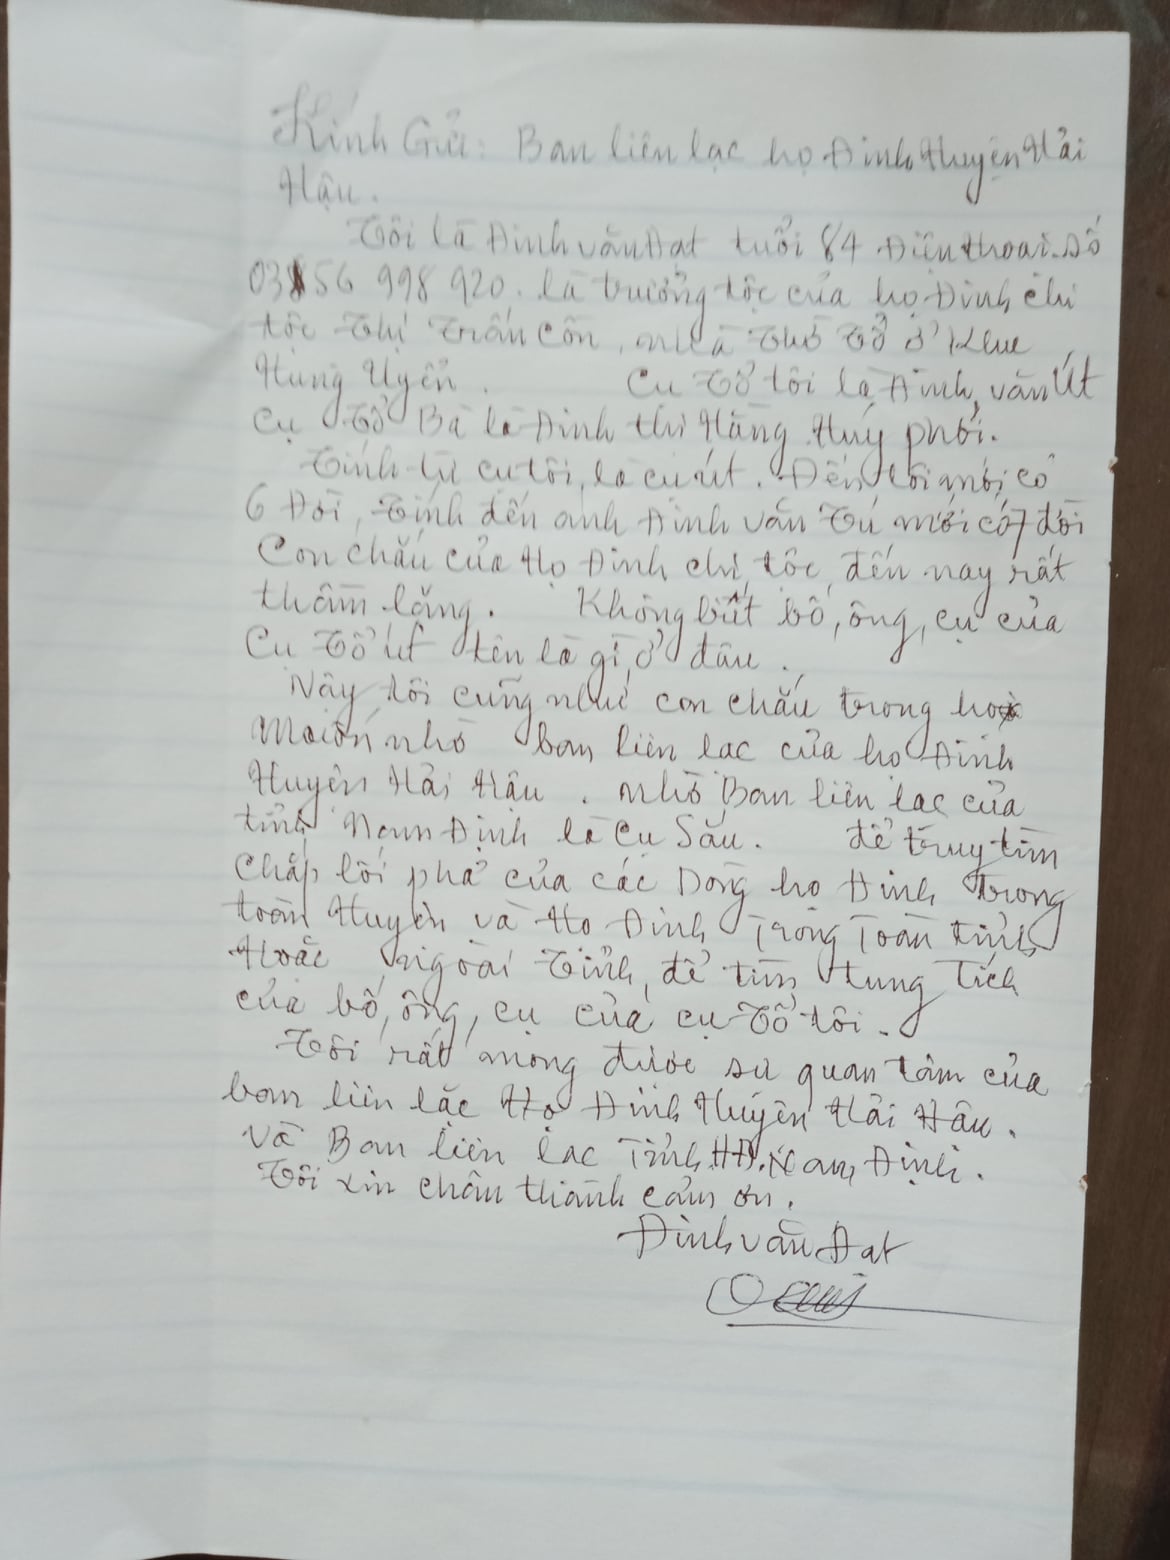 Kính Gửi: Ban liên lạc họ Đinh Huyện Hải
Hậu.
Tôi là Đinh văn Đạt tuổi 84 Điện thoai. số
03856 998 920. là trưởng tộc của họ Đinh chi
tộc Thị Trấn Cồn, nhà thờ Tổ ở Khu
Hùng Uyển. Cu Tổ tôi là Đinh văn Út
Cụ Tổ Bà là Đinh thi Hằng Húy phối.
Tính từ cu tôi, là cu út. Đến tôi mới có
6 Đời, Tính đến anh Đinh văn Tú mới có 7 đời
Con cháu của Họ Đinh chi tộc, đến nay rất
thầm lặng. Không biết bố, ông, cụ của
Cụ Tổ út tên là gì, ở đâu.
Nay tôi cũng như con cháu trong họ
Muốn nhờ ban liên lac của họ Đinh
Huyện Hải Hậu. nhờ Ban liên lac của
tỉnh Nam Định là Cu Sáu. để truy tìm
Chắp lối phả của các Dòng họ Đinh Trong
toàn Huyện và Ho Đinh Trong Toàn tỉnh
Hoặc Ngoài Tỉnh, để tìm tung Tích
của bố, ông, cụ của cụ Tổ tôi.
Tôi rất mong được sự quan tâm của
ban liên lặc Họ Đinh Huyện Hải Hậu.
và Ban liên lac Tỉnh HĐ. Nam Định.
Tôi xin chân thành cảm ơn.
Đinh văn Đạt